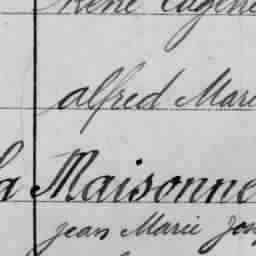 René Eugène
alfred Marie
la Maisonne
jean Marie Jos